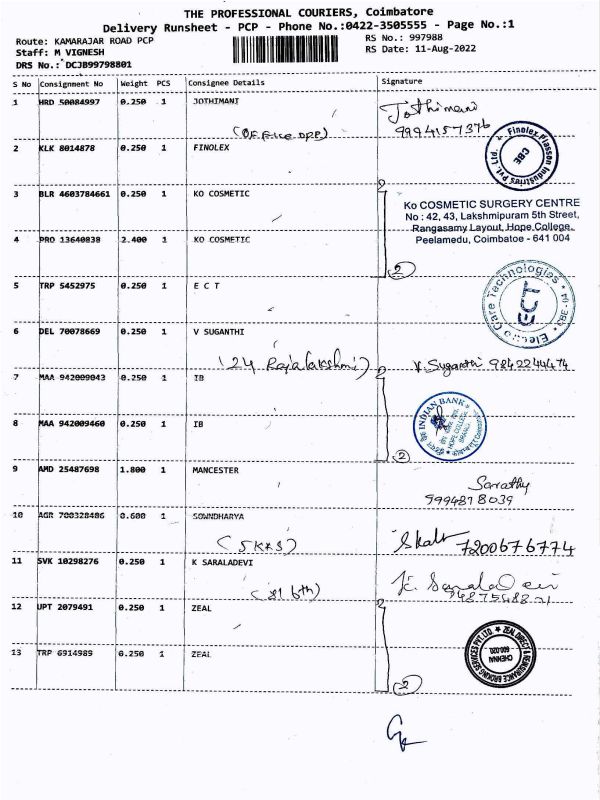 THE PROFESSIONAL COURIERS, Coimbatore
Delivery Runsheet - PCP - Phone No.:0422-3505555 - Page No.:1
Route: KAMARAJAR ROAD PCP RS No.: 997988
Staff: M VIGNESH RS Date: 11-Aug-2022
DRS No.: DCJB99798801
S No Consignment No Weight PCS Consignee Details Signature
1 HRD 50084997 0.250 1 JOTHIMANI Jothimani
(Office opp) 9994157376
2 KLK 8014878 0.250 1 FINOLEX Finolex Plasson Industries Pvt. Ltd. CBE
3 BLR 4603784661 0.250 1 KO COSMETIC Ko COSMETIC SURGERY CENTRE
No : 42, 43, Lakshmipuram 5th Street,
Rangasamy Layout, Hope College,
4 PRO 13640838 2.400 1 KO COSMETIC Peelamedu, Coimbatoe - 641 004
2
5 TRP 5452975 0.250 1 E C T Electro Care Technologies CBE - 04 ECT
6 DEL 70078669 0.250 1 V SUGANTHI
(24 Rajalakshmi) V Suganthi 9842244474
7 MAA 942009043 0.250 1 IB
8 MAA 942009460 0.250 1 IB INDIAN BANK HOPE COLLEGE
2
9 AMD 25487698 1.800 1 MANCESTER Sarathy
9994878039
10 AGR 700328486 0.600 1 SOWNDHARYA
(SKKS) 7200676774
11 SVK 10298276 0.250 1 K SARALADEVI K. Saraladevi
(81 6th)
12 UPT 2079491 0.250 1 ZEAL ZEAL DIRECT & REINSURANCE BROKING SERVICES PVT. LTD. CHENNAI 600.020
13 TRP 6914989 0.250 1 ZEAL
2